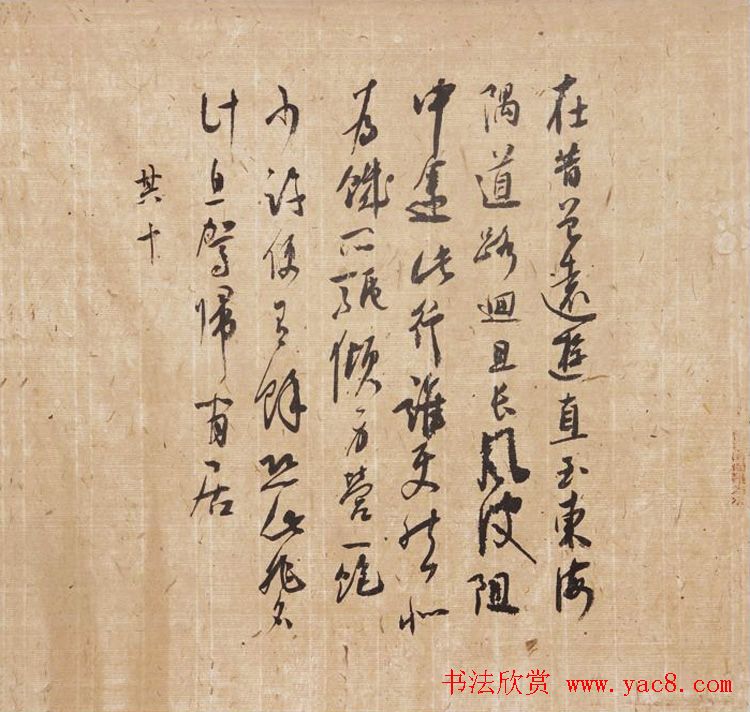 在昔曾遠遊直至東海
隅道路迴且長風波阻
中途此行誰使然似
為饑所驅傾身營一飽
少許便有餘恐此非名
計息駕歸閒居
其十
书法欣赏 www.yac8.com